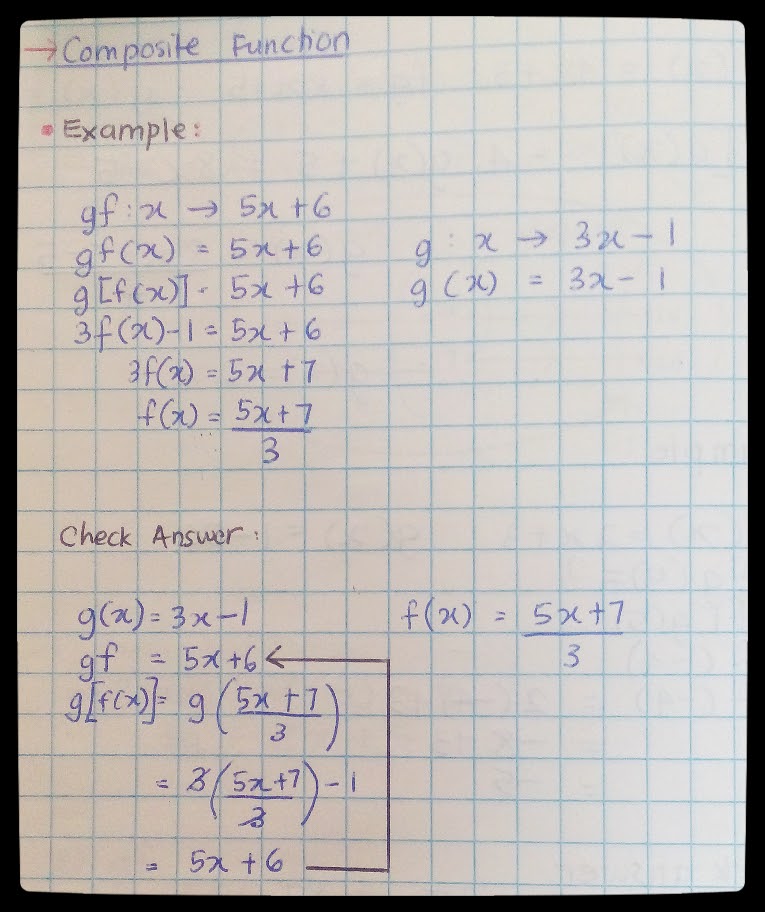 → Composite Function
• Example:
gf : x → 5x + 6
gf(x) = 5x + 6 g : x → 3x - 1
g[f(x)] = 5x + 6 g(x) = 3x - 1
3f(x) - 1 = 5x + 6
3f(x) = 5x + 7
f(x) = 5x + 7
3
Check Answer:
g(x) = 3x - 1 f(x) = 5x + 7
3
gf = 5x + 6 ←
g[f(x)] = g(5x + 7
3)
= 3(5x + 7
3) - 1
= 5x + 6